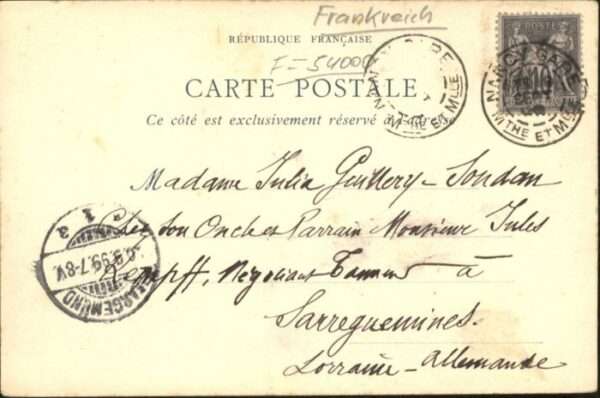 Frankreich
RÉPUBLIQUE FRANÇAISE
F=54000
CARTE POSTALE
Ce côté est exclusivement réservé à l'adresse
POSTES
10
NANCY GARE
MTHE ET MLLE
NANCY GARE
MTHE ET MLLE
Madame Julia Guillery-Soudan
chez son Oncle et Parrain Monsieur Jules
Kempff, Négociant Tanneur à
Sarreguemines
Lorraine-allemande
SAARGEMÜND
9.99.7-8V.
c 1 a